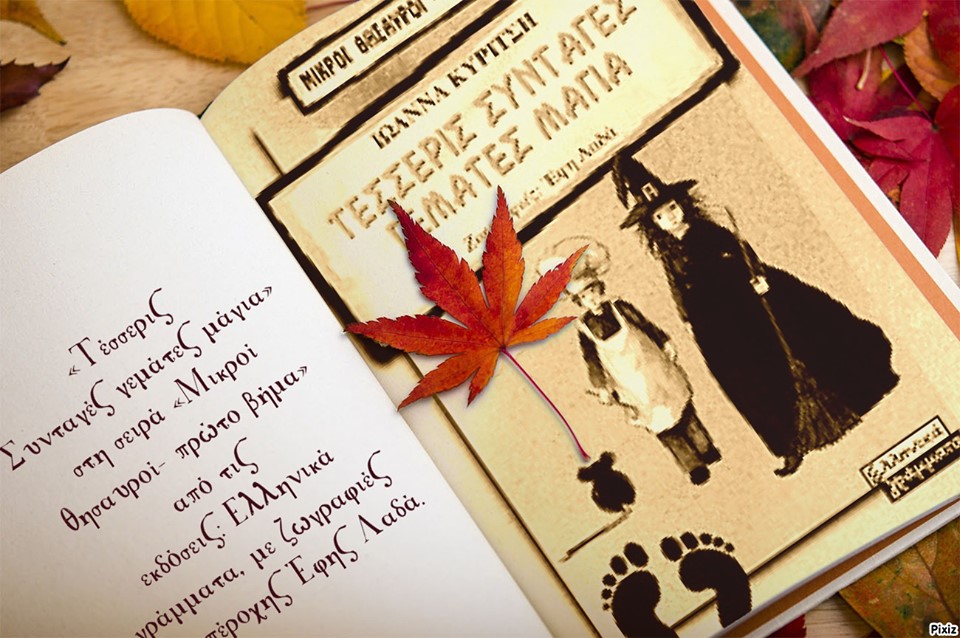 «Τέσσερις
Συνταγές γεμάτες μάγια»
στη σειρά «Μικροί
θησαυροί- πρώτο βήμα»
από τις
εκδόσεις: Ελληνικά
γράμματα, με ζωγραφιές
πέροχης Έφης Λαδά.
ΜΙΚΡΟΙ ΘΗΣΑΥΡΟΙ
ΙΩΑΝΝΑ ΚΥΡΙΤΣΗ
ΤΕΣΣΕΡΙΣ ΣΥΝΤΑΓΕΣ
ΓΕΜΑΤΕΣ ΜΑΓΙΑ
Έφη Λαδά
ελληνικά
γράμματα
Pixiz